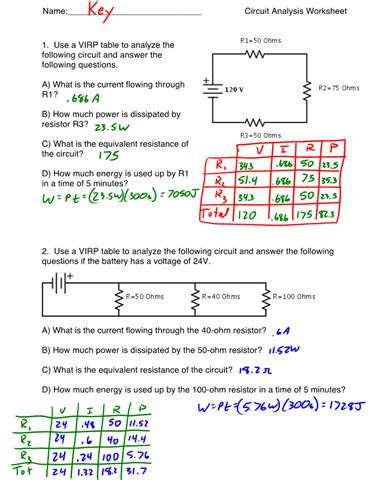 Name: Key
Circuit Analysis Worksheet
1. Use a VIRP table to analyze the
following circuit and answer the
following questions.
A) What is the current flowing through
R1? .686 A
B) How much power is dissipated by
resistor R3? 23.5W
C) What is the equivalent resistance of
the circuit? 175
D) How much energy is used up by R1
in a time of 5 minutes?
W=Pt=(23.5W)(300s)=7050J
R1=50 Ohms
120 V
R2=75 Ohms
R3=50 Ohms
V I R P
R1 34.3 .686 50 23.5
R2 51.4 .686 75 35.3
R3 34.3 .686 50 23.5
Total 120 .686 175 82.3
2. Use a VIRP table to analyze the following circuit and answer the following
questions if the battery has a voltage of 24V.
R=50 Ohms R=40 Ohms R=100 Ohms
A) What is the current flowing through the 40-ohm resistor? .6A
B) How much power is dissipated by the 50-ohm resistor? 11.52W
C) What is the equivalent resistance of the circuit? 18.2 Ω
D) How much energy is used up by the 100-ohm resistor in a time of 5 minutes?
W=Pt=(5.76W)(300s)=1728J
V I R P
R1 24 .48 50 11.52
R2 24 .6 40 14.4
R3 24 .24 100 5.76
Tot 24 1.32 18.2 31.7